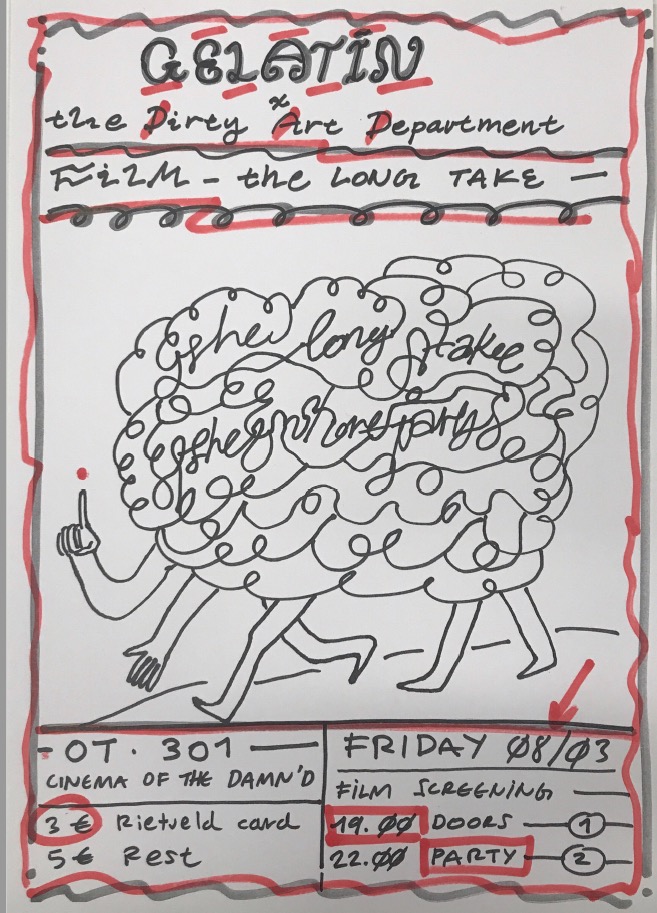 GELATIN
x
the Dirty Art Department
FiLM - the LONG TAKE -
the long take
the short party
- OT. 301 -
CINEMA OF THE DAMN'D
3 € Rietveld card
5 € Rest
FRIDAY 08/03
FILM SCREENING -
19.00 DOORS - 1
22.00 PARTY - 2